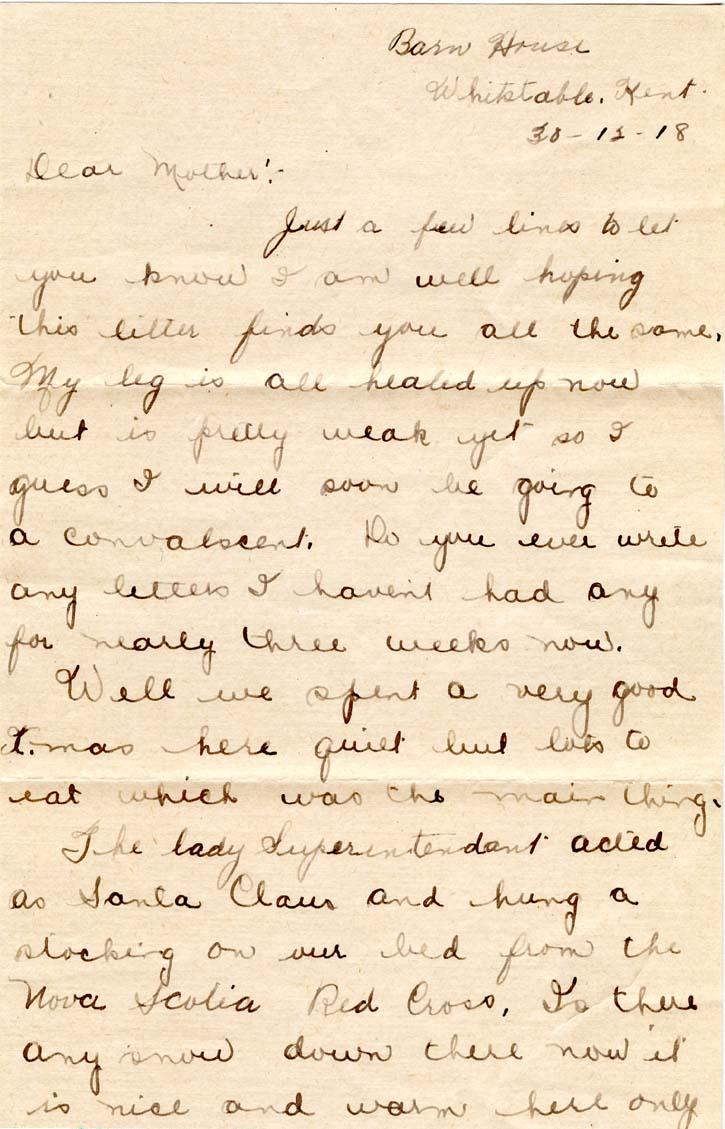 Barn House
Whitstable. Kent.
30-12-18
Dear Mother:-
Just a few lines to let
you know I am well hoping
this letter finds you all the same.
My leg is all healed up now
but is pretty weak yet so I
guess I will soon be going to
a convalscent. Do you ever write
any letters I havent had any
for nearly three weeks now.
Well we spent a very good
X.mas here quiet but lots to
eat which was the main thing.
The lady Superintendant acted
as Santa Claus and hung a
stocking on our bed from the
Nova Scotia Red Cross. Is there
any snow down there now it
is nice and warm here only